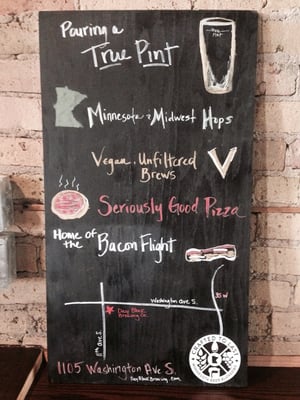 Pouring a
True Pint
Minnesota & Midwest Hops
Vegan, Unfiltered
Brews
Seriously Good Pizza
Home of
the Bacon Flight
Washington Ave S.
35W
Day Block
Brewing Co.
11th Ave S.
1105 Washington Ave S.
DayBlockBrewing.com